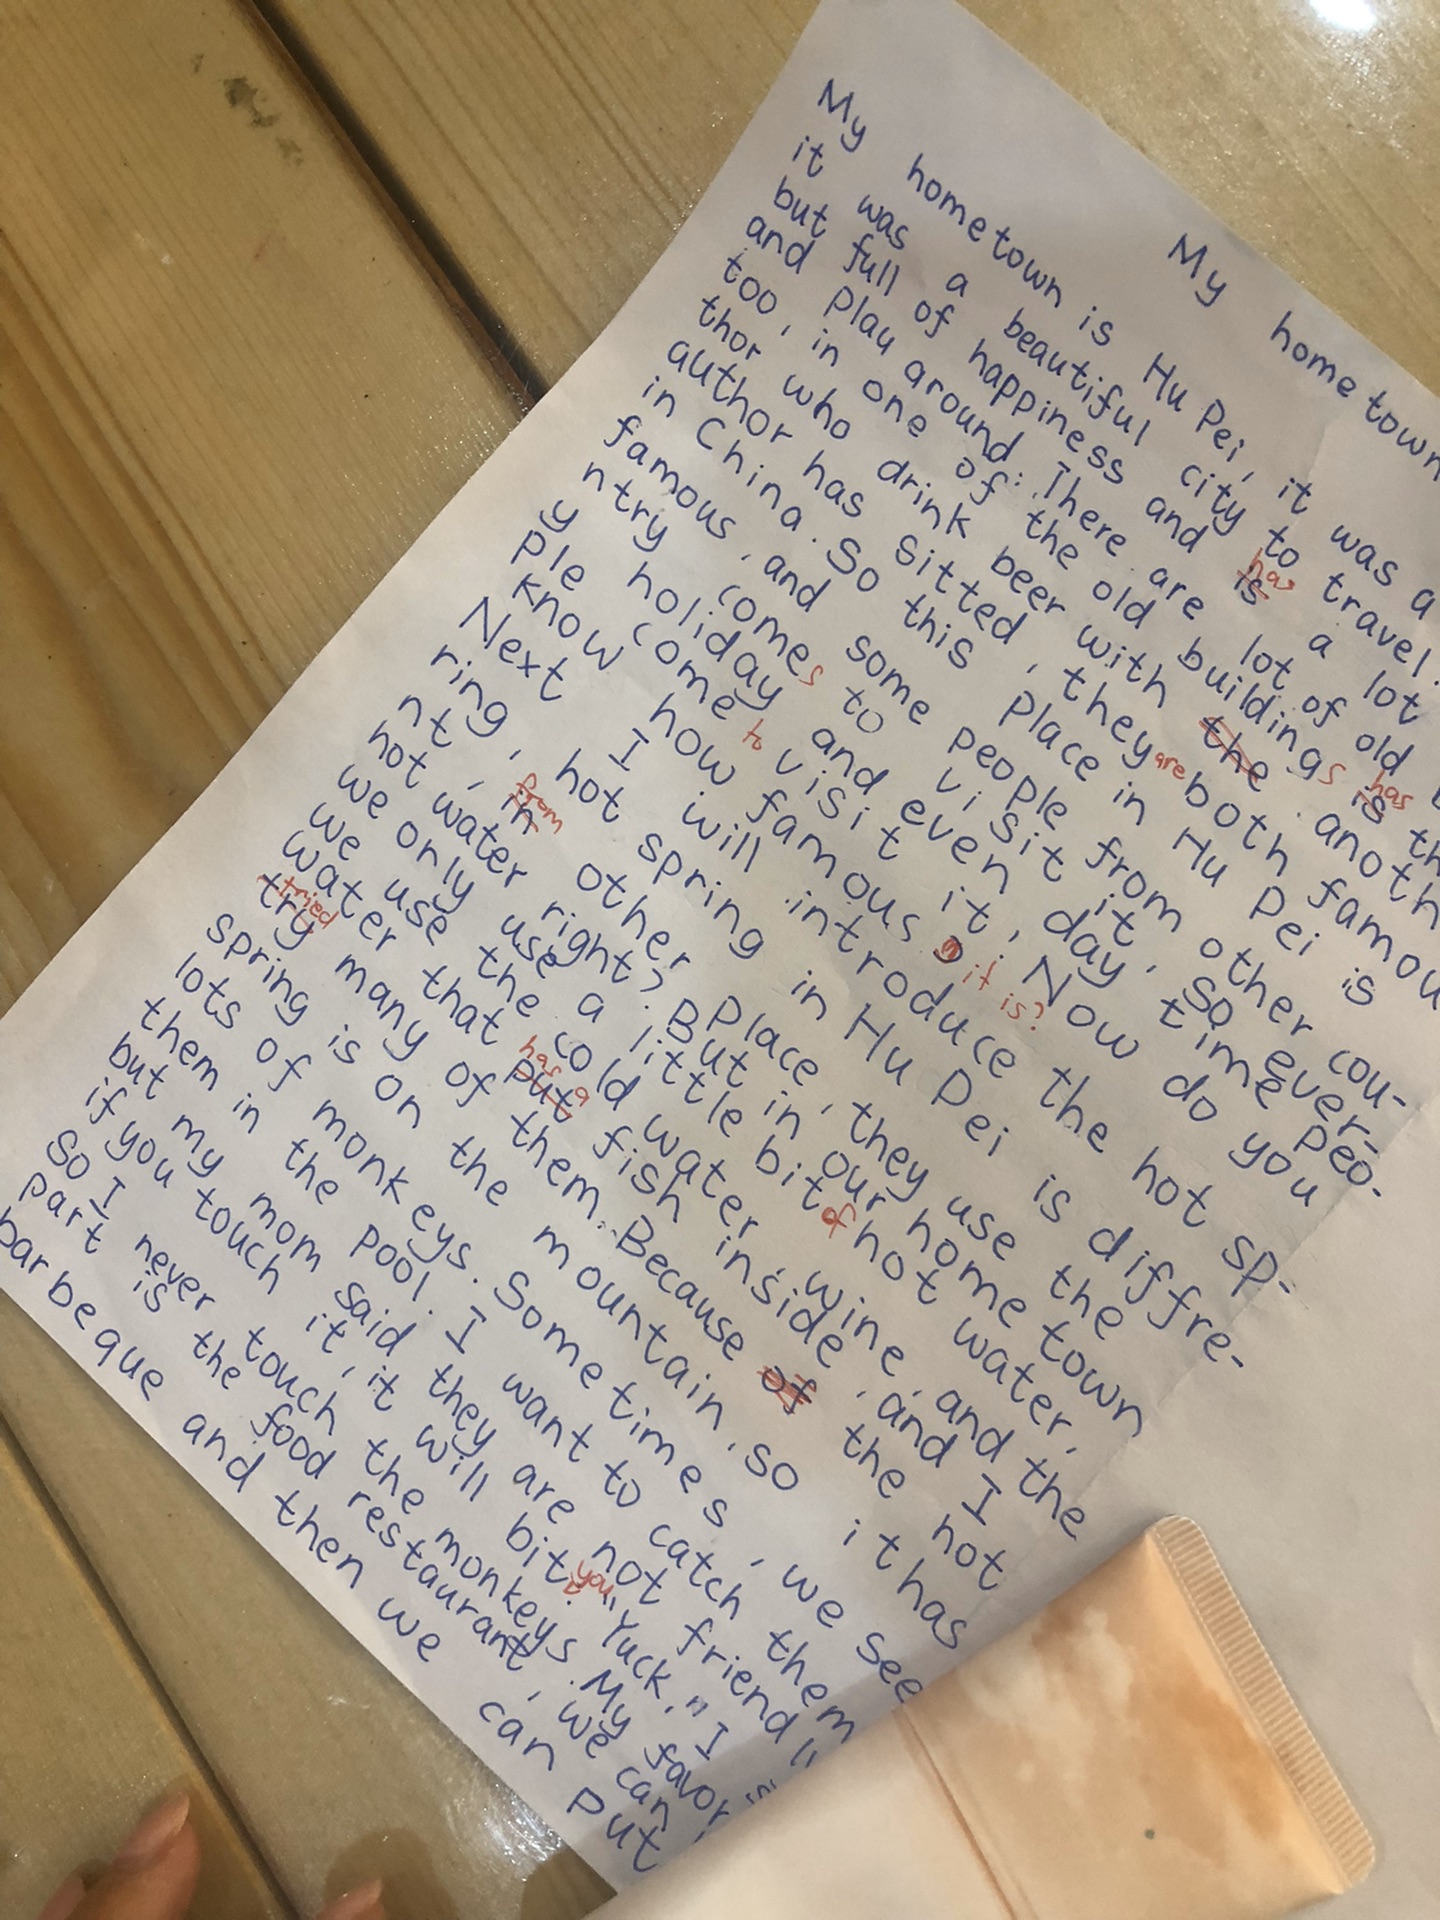 My hometown
My hometown is Hu Pei, it was a
it was a beautiful city to travel.
but full of happiness and is has a lot
and play around. There are lot of old
too, in one of the old buildings is has th
thor who drink beer with the another
author has sitted, they are both famou
in China. So this place in Hu Pei is
famous, and some people from other cou-
ntry comes to visit it, So ever-
y holiday and even day, time peo-
ple come to visit it, Now do you
know how famous it is?
Next I will introduce the hot sp-
ring, hot spring in Hu Pei is diffre-
nt, in from other place, they use the
hot water right? But in our hometown
we only use a little bit of hot water,
we use the cold water, wine, and the
water that put has a fish inside, and I
try tried many of them. Because of the hot
spring is on the mountain, so it has
lots of monkeys. Sometimes, we see
them in the pool. I want to catch them
but my mom said they are not friendl
if you touch it, it will bite you, Yuck," I
So I never touch the monkeys. My favor
part is the food restaurant, we can
barbeque and then we can put